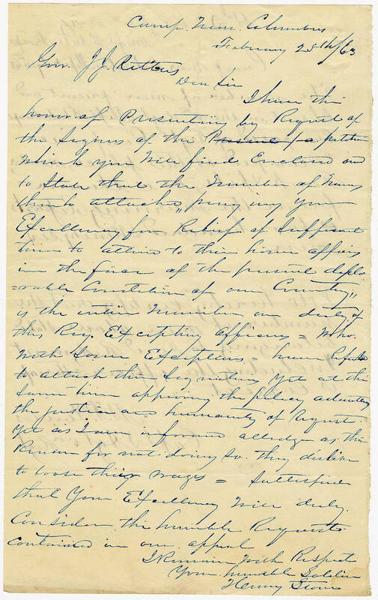 Camp near Columbus
February 25th/63
Gov. J. J. Pettus
Dear Sir
I have the
honor of Presenting by Request of
the Signers of the petition
which you will find Enclosed and
to State that the Number of Names
thereto attached, praying your
Excellency for Relief of sufficient
time to attend to their home affairs
in the of the present deplo
-rable Condition of our Country"
is the entire Number on duty of
this Reg. Excepting Officers who
with some Exceptions have Refused
to attach their Signatures yet at the
same time approving the policy admitting
the justice and humanity of Request
yet as I am informed alledge as the
Reason for not doing so. they decline
to loose their wages =
that Your Excellency will duly
Consider the humble Requests
Contained in our appeal
I Remain with Respect
Your humble Soldier
Henry Stone